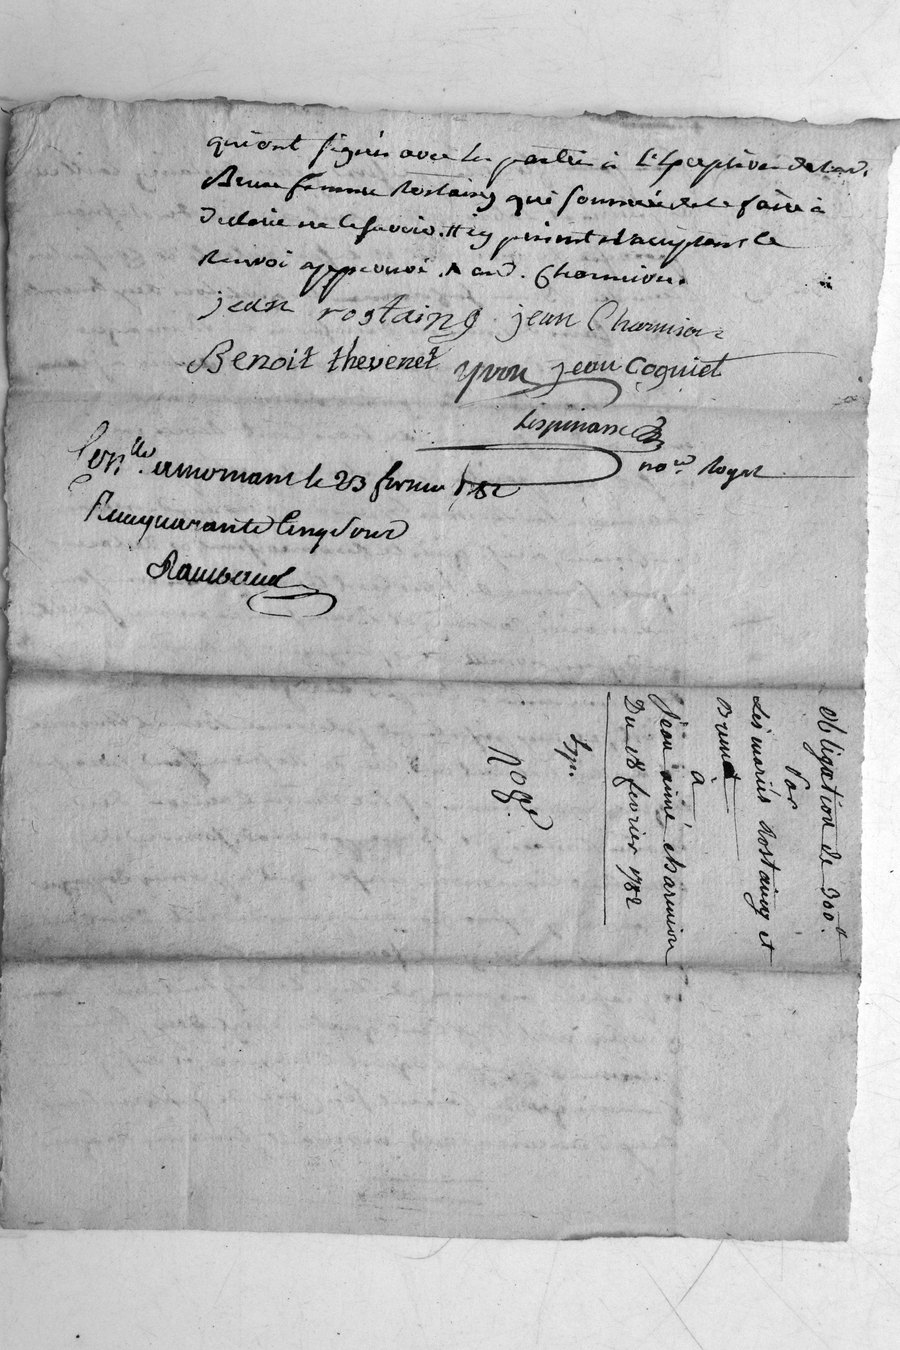 qui ont signés avec les parties à L'exception de lad.
Brune femme Rostaing qui sommée de le faire à
Declaré ne le scavoir. # ici present et acceptant le
Renvoi approuvé. aud. Charmion.
jean rostaing jean Charmion
Benoit thevenet yvon jean Coquiet
Lespinasse
no.re Royal
Con.lle amornant le 23 fevrier 1782
Reçu quarante cinq sous
Rambaud
obligation de 300.lt
Par
Les mariés Rostaing et
Brunet
à
Jean aimé charmion
Du 18 fevrier 1782
Exp.